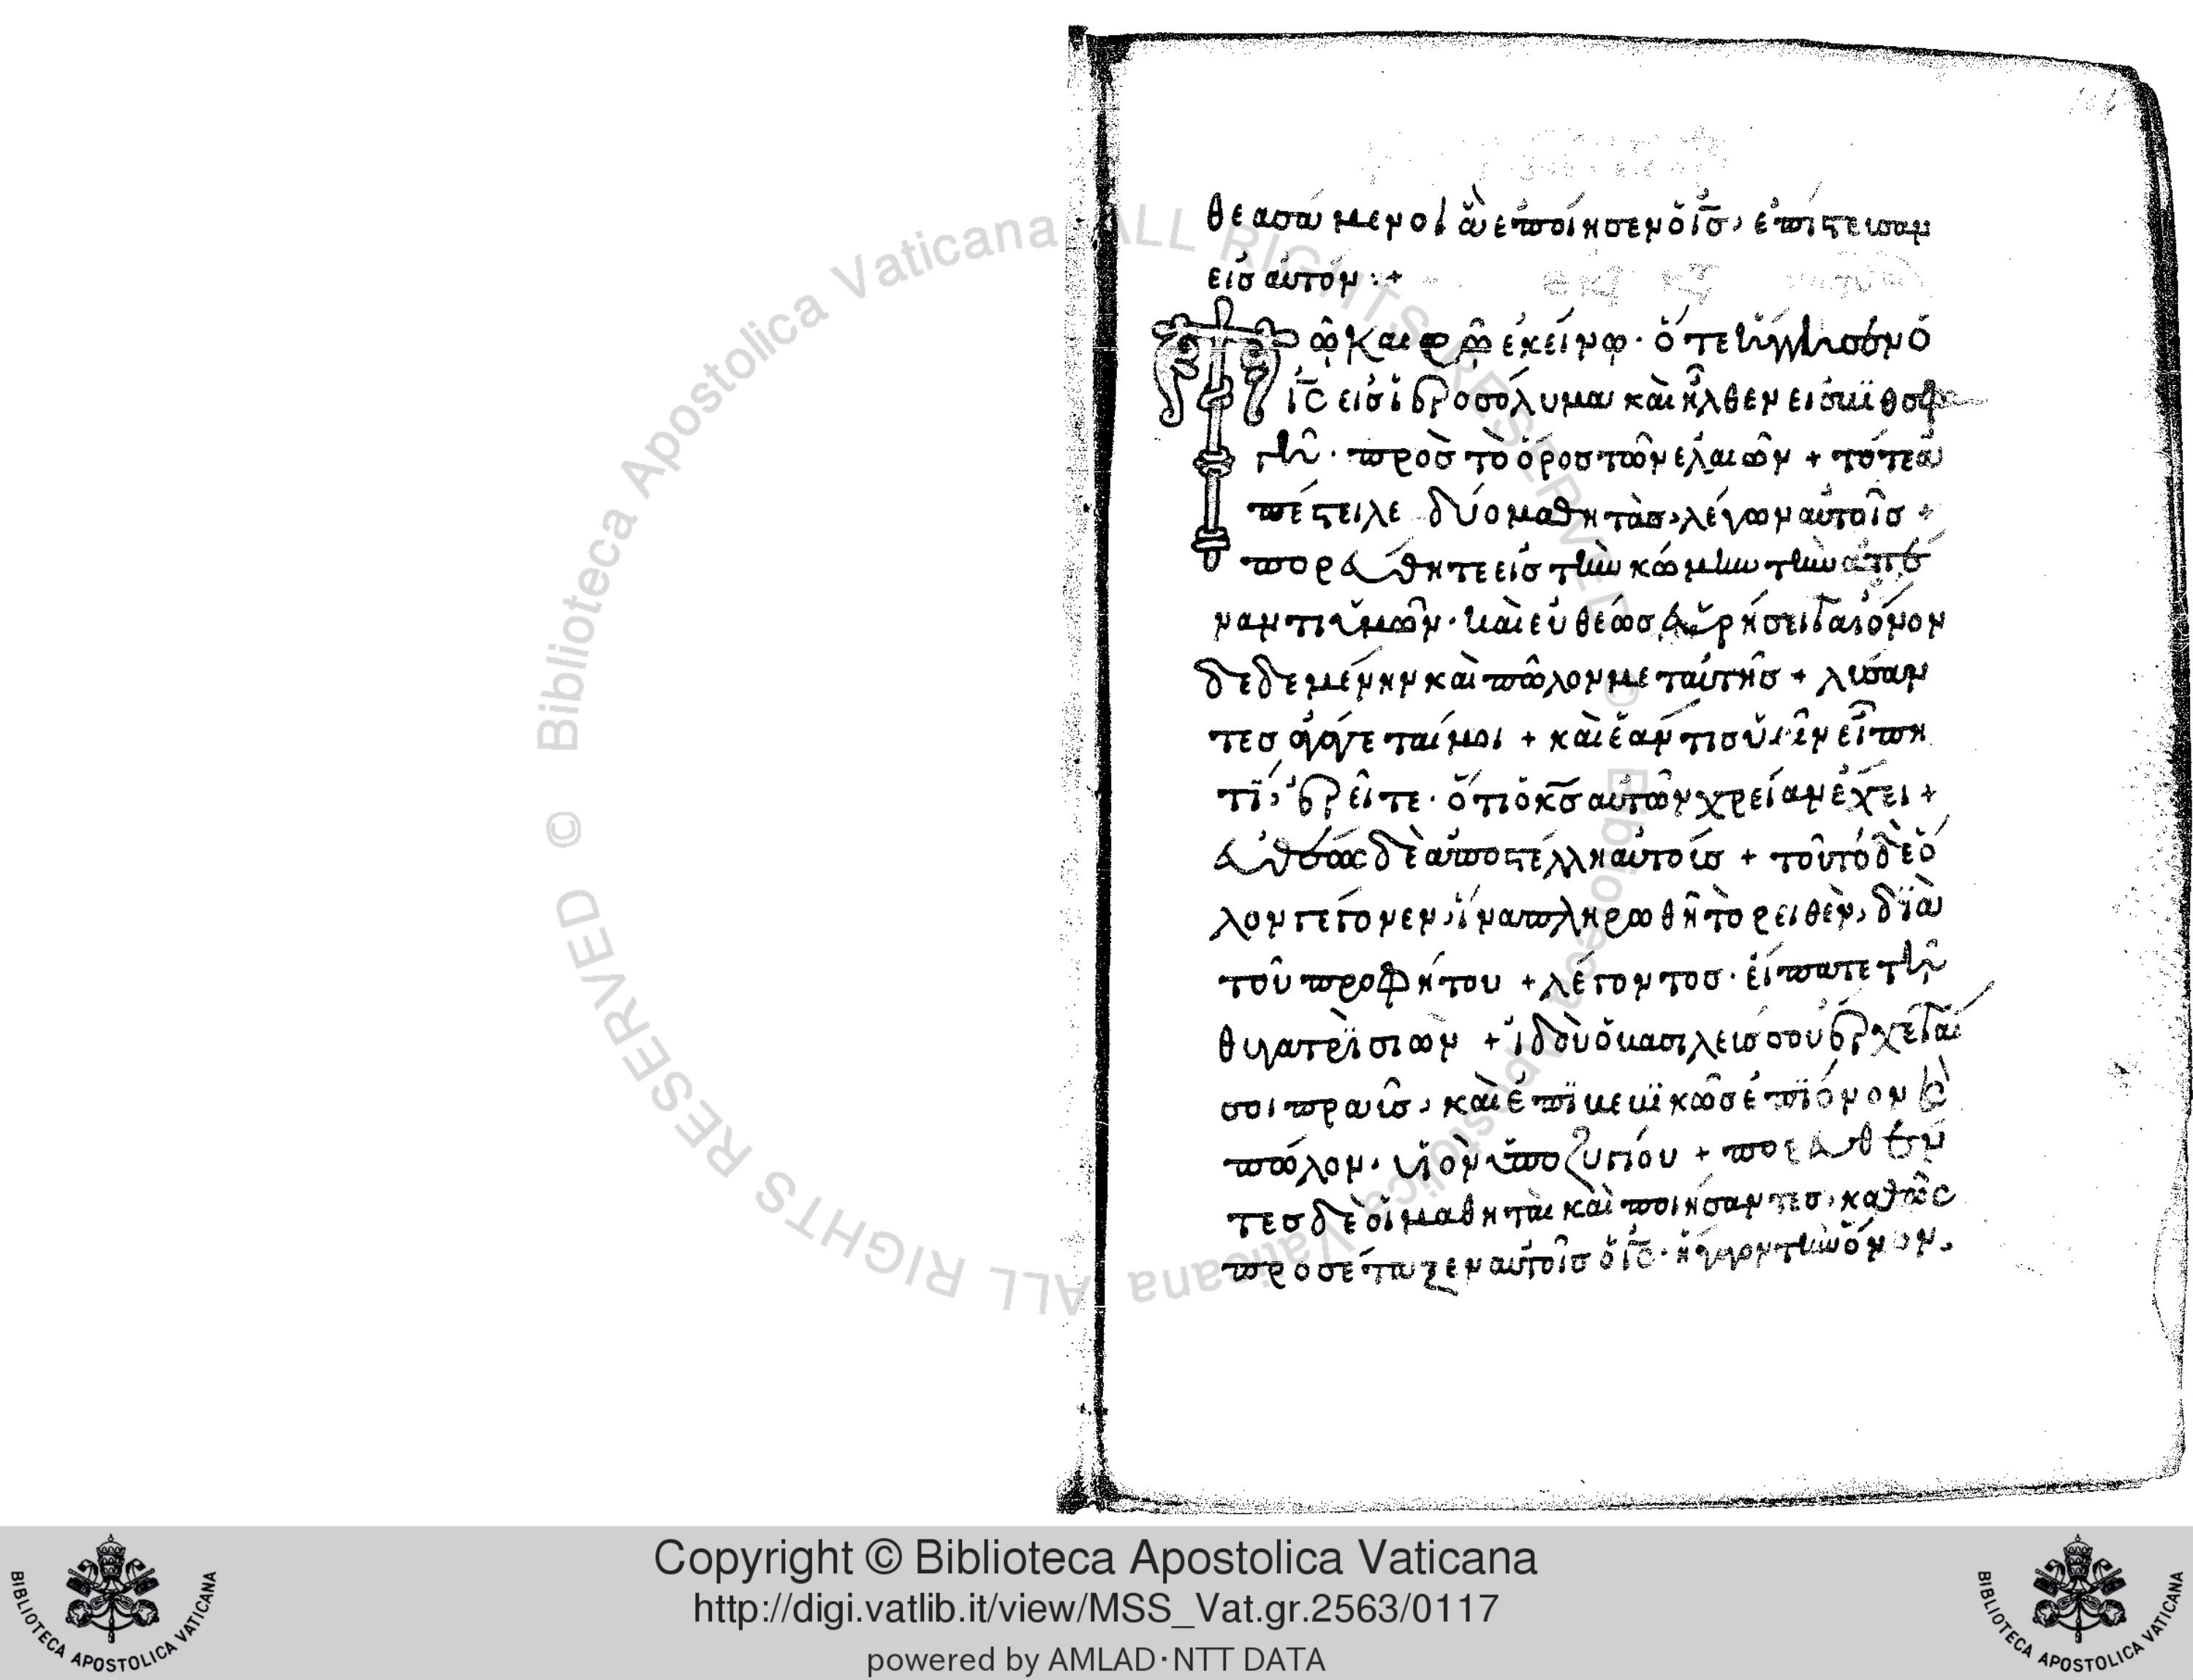 θεασάμενοι ἃ ἐποίησεν ὁ ις̅, ἐπίστευσαν
εἰς αὐτόν :+
Τῶ καιρῶ ἐκείνω· ὅτε ἤγγισεν ὁ
ις̅ εἰς ἱεροσόλυμα καὶ ἦλθεν εἰς βϊθσφα
γῆ· πρὸς τὸ ὄρος τῶν ἐλαιῶν + τότε ἀ
πέστειλε δύο μαθητὰς, λέγων αὐτοῖς +
πορεύθητε εἰς τὴν κώμην τὴν ἀπέ
ναντι ὑμῶν· καὶ εὐθέως εὑρήσειται ὄνον
δεδεμένην καὶ πῶλον μετ αὐτῆς + λύσαν
τες ἀγάγεται μοι + καὶ ἐάν τις ὑμῖν εἴπη
τϊ, ἐρεῖτε· ὅτι ὁ κς̅ αὐτῶν χρείαν ἔχει +
εὐθέως δὲ ἀποστέλλη αὐτούς + τοῦτο δὲ ὅ
λον γέγονεν, ἵνα πληρωθῆ τὸ ρειθὲν, δϊὰ
τοῦ προφήτου + λέγοντος· εἴπατε τῆ
θυγατρϊ σιὼν + ἰδοὺ ὁ βασιλεύς σου ἔρχεται
σοι πραῢς, καὶ ἐπϊβεβϊκῶς ἐπϊ ὄνον καὶ
πῶλον· υἱὸν ὑποζυγίου + πορευθέν
τες δὲ οἱ μαθηταὶ καὶ ποιήσαντες, καθὼς
προσέταξεν αὐτοῖς ὁ ις̅· ἤγαγον τὴν ὄνον,
Copyright © Biblioteca Apostolica Vaticana
http://digi.vatlib.it/view/MSS_Vat.gr.2563/0117
powered by AMLAD·NTT DATA
BIBLIOTECA APOSTOLICA VATICANA
BIBLIOTECA APOSTOLICA VATICANA
© Biblioteca Apostolica Vaticana ALL RIGHTS RESERVED © Biblioteca Apostolica Vaticana ALL RIGHTS RESERVED